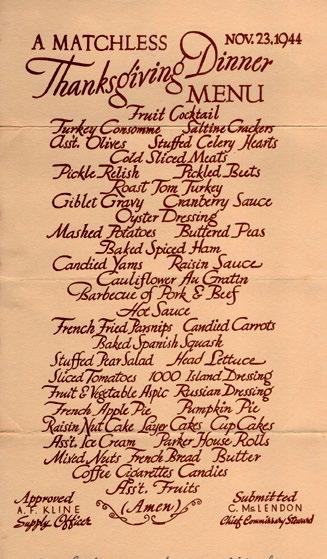 A MATCHLESS NOV. 23, 1944
Thanksgiving Dinner
MENU
Fruit Cocktail
Turkey Consomme Saltine Crackers
Ass't. Olives Stuffed Celery Hearts
Cold Sliced Meats
Pickle Relish Pickled Beets
Roast Tom Turkey
Giblet Gravy Cranberry Sauce
Oyster Dressing
Mashed Potatoes Buttered Peas
Baked Spiced Ham
Candied Yams Raisin Sauce
Cauliflower Au Gratin
Barbecue of Pork & Beef
Hot Sauce
French Fried Parsnips Candied Carrots
Baked Spanish Squash
Stuffed Pear Salad Head Lettuce
Sliced Tomatoes 1000 Island Dressing
Fruit & Vegetable Aspic Russian Dressing
French Apple Pie Pumpkin Pie
Raisin Nut Cake Layer Cakes Cup Cakes
Ass't. Ice Cream Parker House Rolls
Mixed Nuts French Bread Butter
Coffee Cigarettes Candies
Ass't. Fruits
Approved (Amen) Submitted
A. F. KLINE C. McLENDON
Supply Officer Chief Commissary Steward